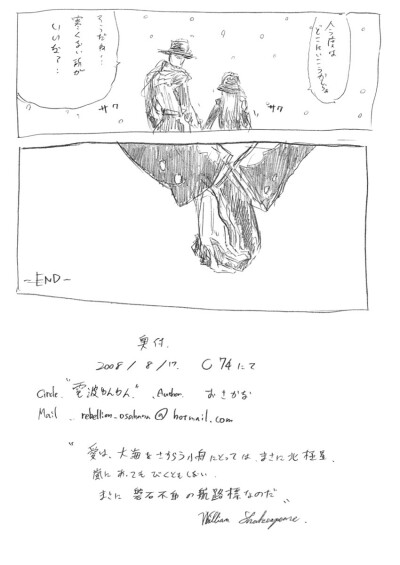 今度は
どこにいこうかしら
そうだね…
寒くない所が
いいな?…
ザク
ザク
-END-
奥付.
2008/8/17. C74にて
Circle "電波りんりん" .Author おさかな
Mail _ rebellion_osakana@hotmail.com
"愛は、大海をさすらう小舟にとっては、まさに北極星、
嵐にあってもびくともしない.
まさに 磐石不動の航路標なのだ"
William Shakespeare.